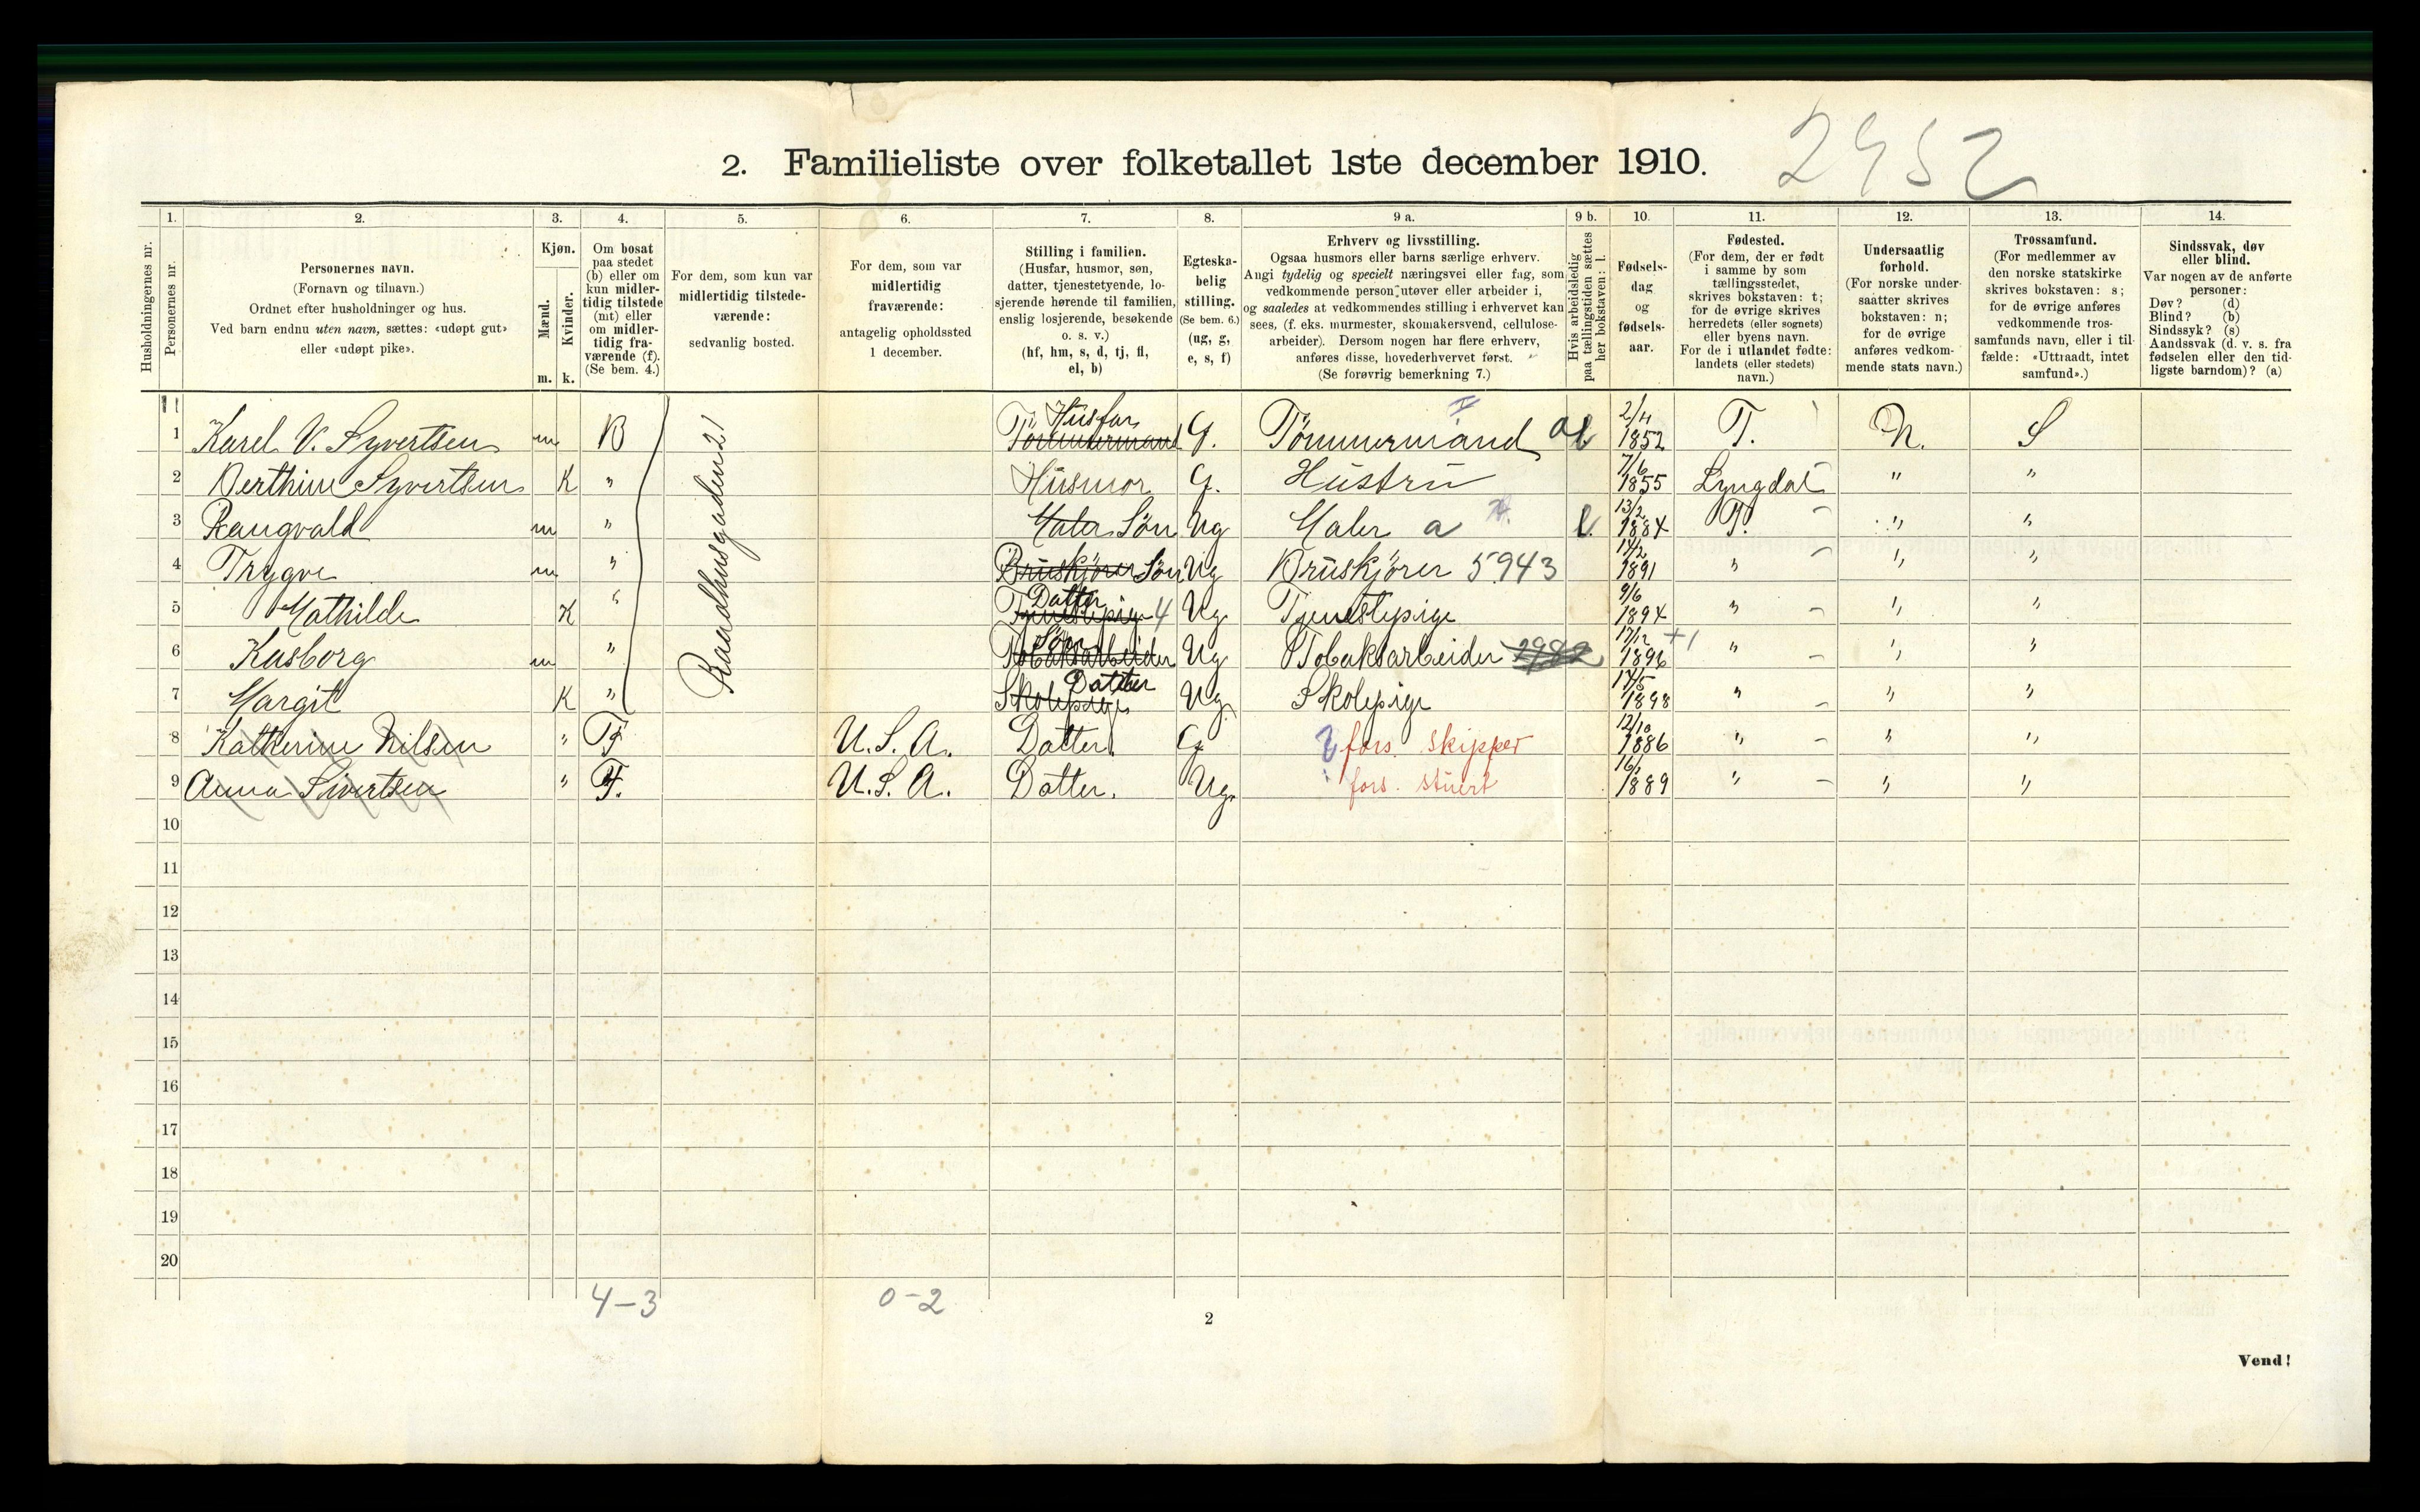 2. Familieliste over folketallet 1ste december 1910.
2452
1. 2. 3. 4. 5. 6. 7. 8. 9 a. 9 b. 10. 11. 12. 13. 14.
Husholdningernes nr.
Personernes nr.
Personernes navn.
(Fornavn og tilnavn.)
Ordnet efter husholdninger og hus.
Ved barn endnu uten navn, sættes: «udøpt gut»
eller «udøpt pike».
Kjøn.
Mænd.
Kvinder.
m. k.
Om bosat
paa stedet
(b) eller om
kun midler-
tidig tilstede
(mt) eller
om midler-
tidig fra-
værende (f).
(Se bem. 4.)
For dem, som kun var
midlertidig tilstede-
værende:
sedvanlig bosted.
For dem, som var
midlertidig
fraværende:
antagelig opholdssted
1 december.
Stilling i familien.
(Husfar, husmor, søn,
datter, tjenestetyende, lo-
sjerende hørende til familien,
enslig losjerende, besøkende
o. s. v.)
(hf, hm, s, d, tj, fl,
el, b)
Egteska-
belig
stilling.
(Se bem. 6.)
(ug, g,
e, s, f)
Erhverv og livsstilling.
Ogsaa husmors eller barns særlige erhverv.
Angi tydelig og specielt næringsvei eller fag, som
vedkommende person utøver eller arbeider i,
og saaledes at vedkommendes stilling i erhvervet kan
sees, (f. eks. murmester, skomakersvend, cellulose-
arbeider). Dersom nogen har flere erhverv,
anføres disse, hovederhvervet først.
(Se forøvrig bemerkning 7.)
Hvis arbeidsledig
paa tællingstiden sættes
her bokstaven: l.
Fødsels-
dag
og
fødsels-
aar.
Fødested.
(For dem, der er født
i samme by som
tællingsstedet,
skrives bokstaven: t;
for de øvrige skrives
herredets (eller sognets)
eller byens navn.
For de i utlandet fødte:
landets (eller stedets)
navn.)
Undersaatlig
forhold.
(For norske under-
saatter skrives
bokstaven: n;
for de øvrige
anføres vedkom-
mende stats navn.)
Trossamfund.
(For medlemmer av
den norske statskirke
skrives bokstaven: s;
for de øvrige anføres
vedkommende tros-
samfunds navn, eller i til-
fælde: «Uttraadt, intet
samfund».)
Sindssvak, døv
eller blind.
Var nogen av de anførte
personer:
Døv? (d)
Blind? (b)
Sindssyk? (s)
Aandssvak (d. v. s. fra
fødselen eller den tid-
ligste barndom)? (a)
Raadhusgaden 21
1 Karel V. Syvertsen m B Tömmermand Husfar G. Tömmermand al 2/4 1852 T. N. S
2 Berthine Syvertsen K " Husmor G. Hustru 7/6 1855 Lyngdal " "
3 Rangvald m " Maler Søn Ug Maler a l. 13/2 1884 T. " "
4 Trygve m " Bruskjører Søn Ug Bruskjører 5943 1891 " " "
5 Mathilde K " Tjenestepige Datter 4 Ug. Tjenestepige 9/6 1894 " " "
6 Kasborg m " Tobaksarbeider Søn Ug. Tobaksarbeider 2982 17/12 1896 +1 " " "
7 Margit K " Skolepige Datter Ug. Skolepige 17/5 1898 " " "
8 Katherine Nilsen " F U.S.A. Datter. G fors. skipper 12/10 1886 " " "
9 Anna Sivertsen " F. U.S.A. Datter. Ug. fors. stuert 1889 " " "
10
11
12
13
14
15
16
17
18
19
20
4-3 0-2
2
Vend!